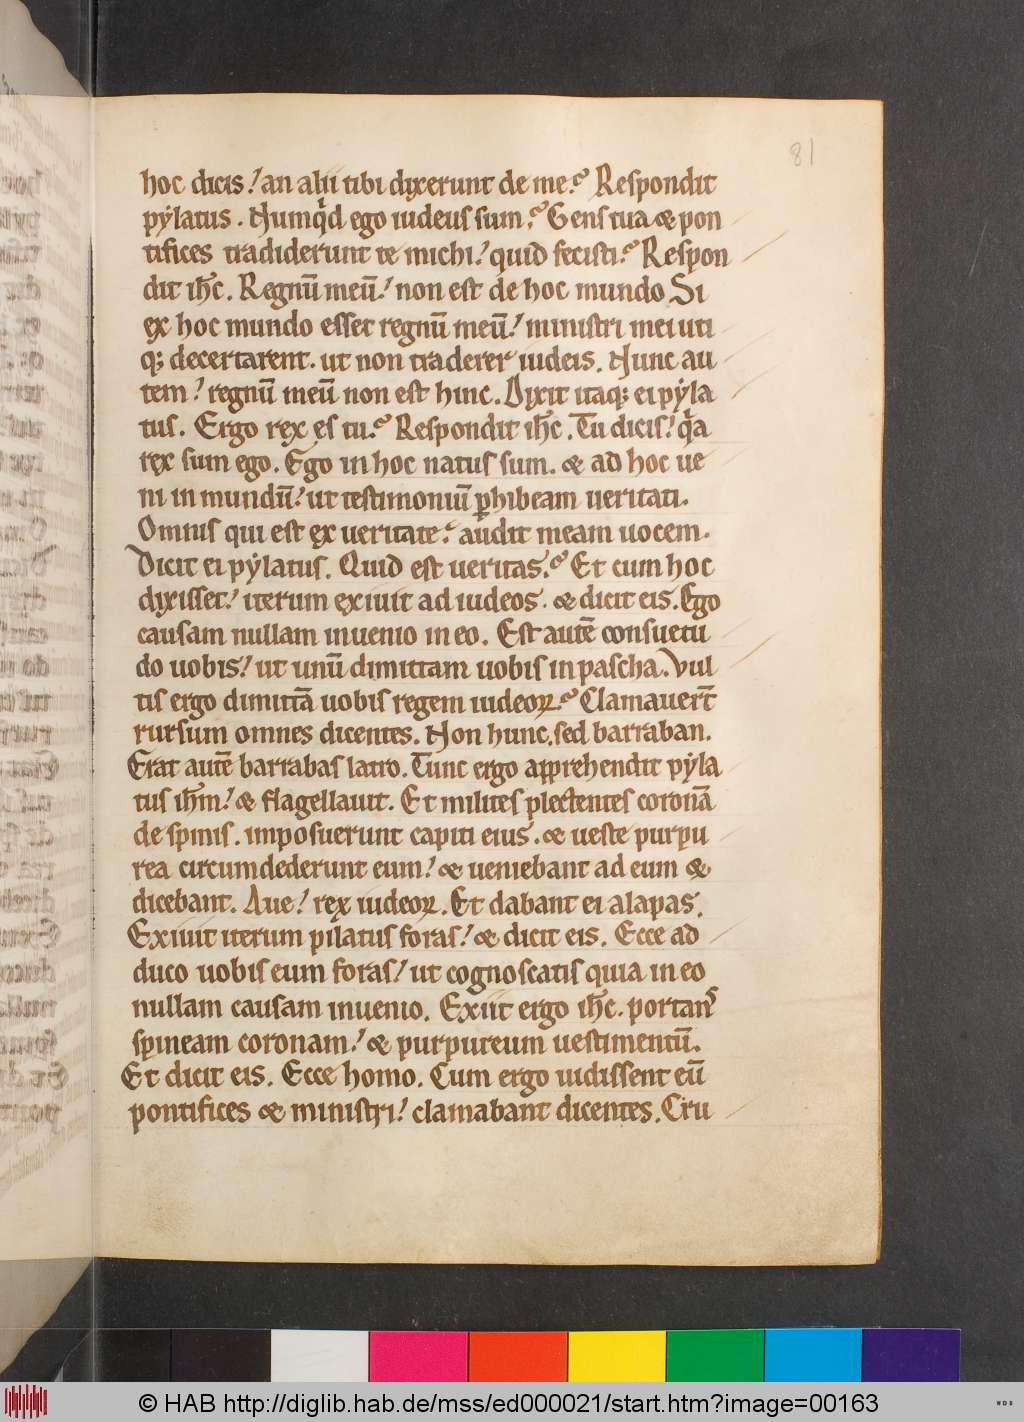 81
hoc dicis! an alii tibi dixerunt de me? Respondit
pẏlatus. Numq̇d ego iudeus sum? Gens tua & pon
tifices tradiderunt te michi! quid fecisti? Respon
dit ih̅c. Regnū meū! non est de hoc mundo Si
ex hoc mundo esset regnū meū! ministri mei uti
q; decertarent. ut non traderer iudeis. Nunc au
tem! regnū meū non est hinc. Dixit itaq; ei pẏla
tus. Ergo rex es tu? Respondit ih̅c. Tu dicis! q̇a
rex sum ego. Ego in hoc natus sum. & ad hoc ue
ni in mundū! ut testimoniū ꝑhibeam ueritati.
Omnis qui est ex ueritate! audit meam uocem.
Dicit ei pẏlatus. Quid est ueritas? Et cum hoc
dixisset! iterum exiuit ad iudeos. & dicit eis. Ego
causam nullam inuenio in eo. Est autē consuetu
do uobis! ut unū dimittam uobis in pascha. Vul
tis ergo dimittā uobis regem iudeoꝝ? Clamauer̅t
rursum omnes dicentes. Non hunc. sed barraban.
Erat autē barrabas latro. Tunc ergo apprehendit pẏla
tus ih̅m! & flagellauit. Et milites plectentes coronā
de spinis. imposuerunt capiti eius. & ueste purpu
rea circumdederunt eum! & ueniebant ad eum &
dicebant. Aue! rex iudeoꝝ. Et dabant ei alapas.
Exiuit iterum pilatus foras! & dicit eis. Ecce ad
duco uobis eum foras! ut cognoscatis quia in eo
nullam causam inuenio. Exiit ergo ih̅c. portans
spineam coronam! & purpureum uestimentū.
Et dicit eis. Ecce homo. Cum ergo uidissent eū
pontifices & ministri! clamabant dicentes. Cru
© HAB http://diglib.hab.de/mss/ed000021/start.htm?image=00163